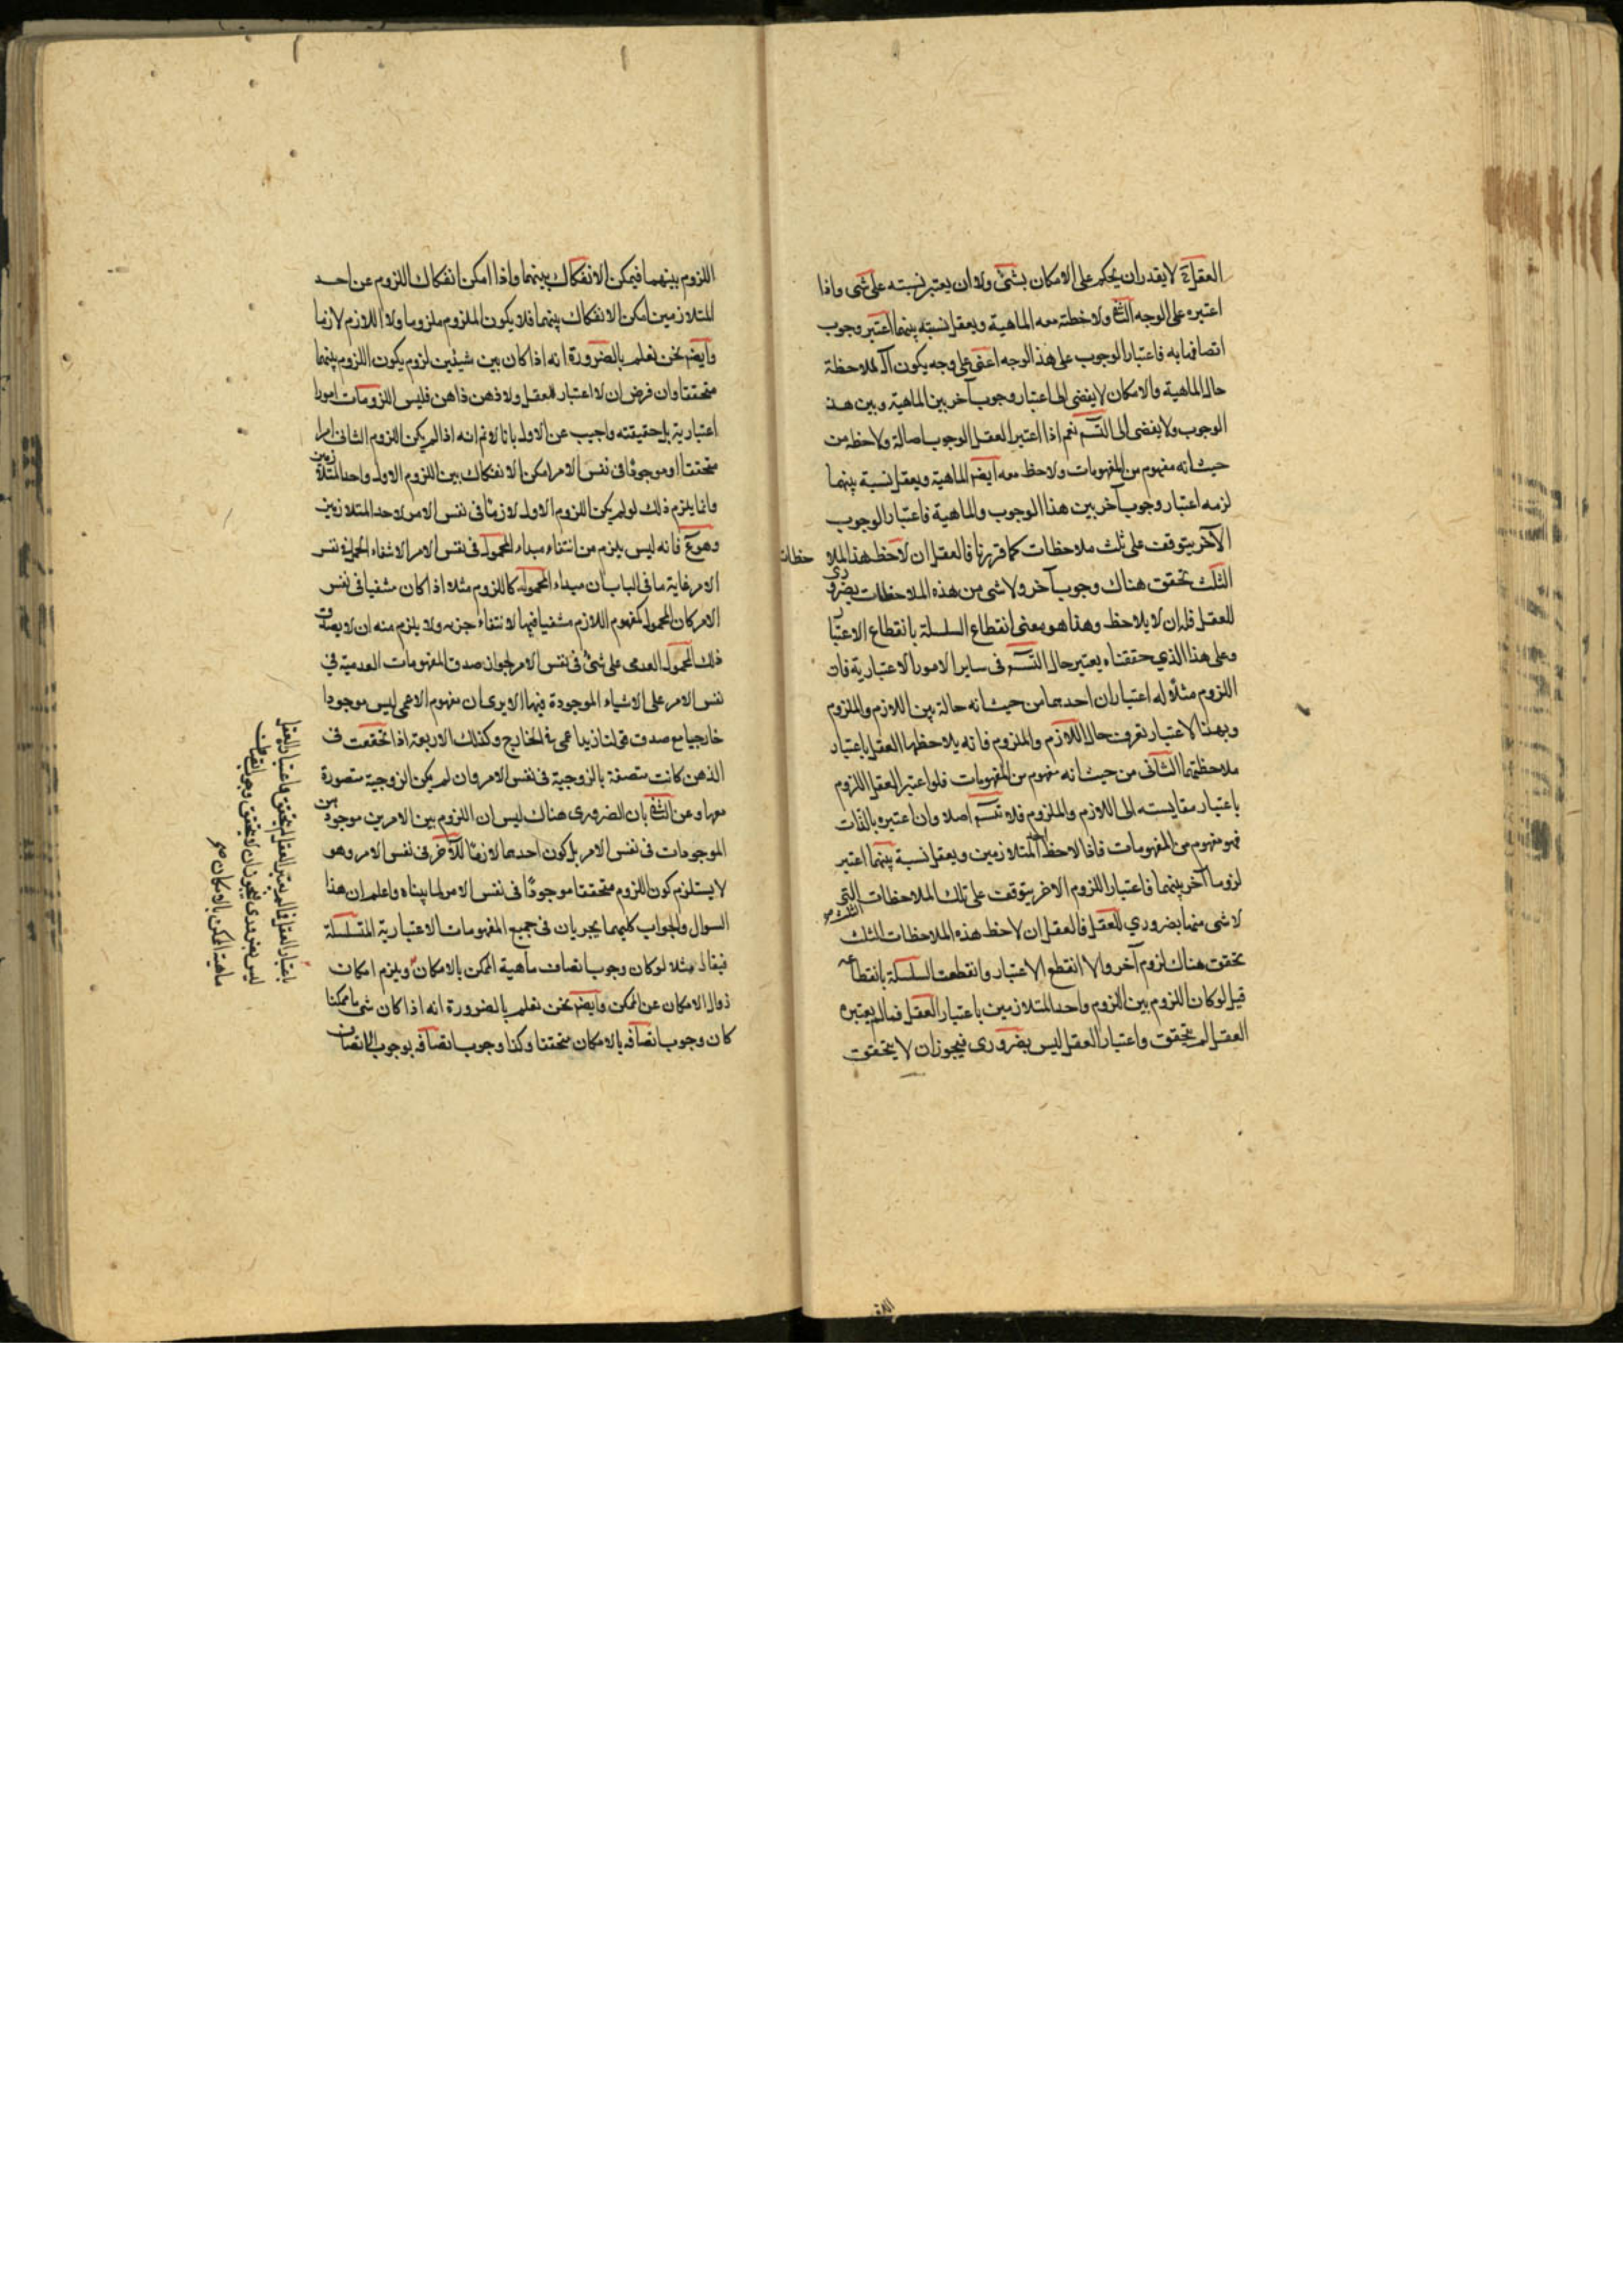 العقل ح لا يقدر ان يحكم على الامكان بشئ ولا ان يعتبر نسبته على شى واذا
اعتبره على الوجه الثانى ولاحظته معه الماهية ويعقل نسبته بينهما اعتبر وجوب
اتصافها به فاعتبار الوجوب على هذ الوجه اعنى على وجه يكون آلة لملاحظة
حال الماهية والامكان لا يفضى الى اعتبار وجوب آخر بين الماهية وبين هذ
الوجوب ولا يفضى الى التسـ نعم اذا اعتبر العقل الوجوب اصالة ولاحظه من
حيث انه مفهوم من المفهومات ولاحظ معه ايضا الماهية ويعقل نسبة بينهما
لزمه اعتبار وجوب آخر بين هذا الوجوب والماهية فاعتبار الوجوب
الآخر يتوقف على ثلث ملاحظات كما قررنا فالعقل ان لاحظ هذ الملا حظات
الثلث تحقق هناك وجوب آخر ولا شى من هذه الملاحظات بضرورى
للعقل فله ان لا يلاحظ وهذا هو معنى انقطاع السلسلة بانقطاع الاعتبار
وعلى هذا الذي حققناه يعتبر حال التسـ فى ساير الامور الاعتبارية فان
اللزوم مثلا له اعتباران احدهما من حيث انه حالة بين اللازم والملزوم
وبهذا الاعتبار تعرف حال اللازم والملزوم فانه يلاحظهما العقل باعتبار
ملاحظتهما الثانى من حيث انه مفهوم من المفهومات فلو اعتبر العقل اللزوم
باعتبار مقايسته الى اللازم والملزوم فلا تسـ اصلا وان اعتبره بالذات
فهو مفهوم من المفهومات فاذا لاحظ المتلازمين ويعقل نسبة بينهما اعتبر
لزوما آخر بينهما فاعتبار اللزوم الاخر يتوقف على تلك الملاحظات الثلث التى
لا شى منها بضروري للعقل فالعقل ان لاحظ هذه الملاحظات الثلث
تحقق هناك لزوم آخر والا انقطع الاعتبار وانقطعت السلسلة بانقطاعه
قيل لو كان اللزوم بين اللزوم واحد المتلازمين باعتبار العقل فما لم يعتبره
العقل لم يتحقق واعتبار العقل ليس بضرورى فيجوز ان لا يتحقق
اللزوم بينهما فيمكن الانفكاك بينهما واذا امكن انفكاك اللزوم عن احد
المتلازمين امكن الانفكاك بينهما فلا يكون الملزوم ملزوما ولا اللازم لازما
وايضا نحن نعلم بالضرورة انه اذا كان بين شيئين لزوم يكون اللزوم بينهما
متحققا وان فرض ان لا اعتبار للعقل ولا ذهن ذاهن فليس اللزومات امورا
اعتبارية بل حقيقته واجيب عن الاول بانا لا نم انه اذا لم يكن اللزوم الثانى امرا
متحققا او موجودا فى نفس الامر امكن الانفكاك بين اللزوم الاول واحد المتلازمين
وانما يلزم ذلك لو لم يكن اللزوم الاول لازما فى نفس الامر لاحد المتلازمين
وهو مم فانه ليس يلزم من انتفاء مبداء المحمول فى نفس الامر الانتفاء الحمل فى نفس
الامر غاية ما فى الباب ان مبداء المحمول كاللزوم مثلا اذا كان منتفيا فى نفس
الامر كان المحمول كمفهوم اللازم منتفيا فيها لانتفاء جزءه ولا يلزم منه ان لا يصدق
ذلك المحمول العدمى على شئ فى نفس الامر لجواز صدق المفهومات العدمية فى
نفس الامر على الاشياء الموجودة فيها الا يرى ان مفهوم الاعمى ليس موجودا
خارجيا مع صدق قولنا زيد اعمى فى الخارج وكذلك الاربعة اذا تحققت فى
الذهن كانت متصفة بالزوجية فى نفس الامر وان لم يكن الزوجية متصورة
معها وعن الثانى بان الضرورى هناك ليس ان اللزوم بين الامرين موجود من
الموجودات فى نفس الامر بل كون احدهما لازما للآخر فى نفس الامر وهو
لا يستلزم كون اللزوم متحققا موجودا فى نفس الامر لما بيناه واعلم ان هذا
السوال والجواب كليهما يجريان فى جميع المفهومات الاعتبارية المتسلسلة
فيقال مثلا لو كان وجوب اتصاف ماهية الممكن بالامكان ويلزم امكان
زوال الامكان عن الممكن وايضا نحن نعلم بالضرورة انه اذا كان شى ما ممكنا
كان وجوب اتصافه بالامكان متحققا وكذا وجوب اتصافه بوجوب الاتصاف
باعتبار العقل فما لم يعتبره العقل لم يتحقق واعتبار العقل
ليس بضرورى فيجوز ان لا يتحقق وجوب اتصاف
ماهية الممكن بالامكان صح